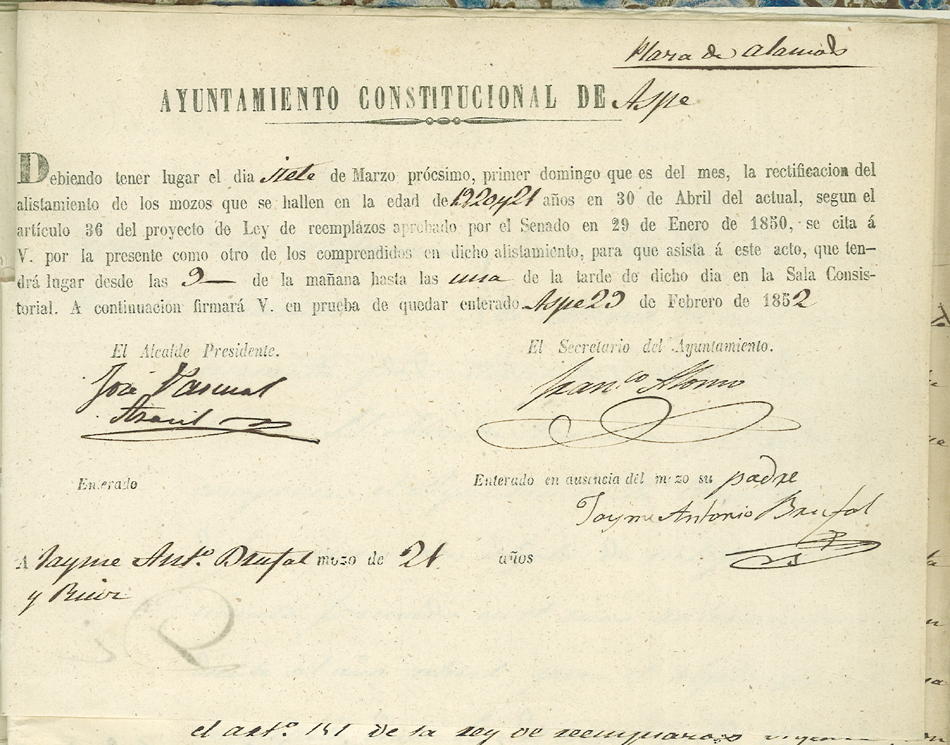 Plaza de alamos
AYUNTAMIENTO CONSTITUCIONAL DE Aspe
Debiendo tener lugar el dia siete de Marzo prócsimo, primer domingo que es del mes, la rectificacion del
alistamiento de los mozos que se hallen en la edad de 19 20 y 21 años en 30 de Abril del actual, segun el
artículo 36 del proyecto de Ley de reemplazos aprobado por el Senado en 29 de Enero de 1850, se cita á
V. por la presente como otro de los comprendidos en dicho alistamiento, para que asista á este acto, que ten-
drá lugar desde las 9 de la mañana hasta las una de la tarde de dicho dia en la Sala Consis-
torial. A continuacion firmará V. en prueba de quedar enterado Aspe 29 de Febrero de 1852
El Alcalde Presidente.
El Secretario del Ayuntamiento.
José Pascual
Franco Alonso
Enterado
Enterado en ausencia del mozo su padre
Jayme Antonio Brufal
A Jayme Anto. Brufal mozo de 21 años
y
el arto. 131 de la ley de reemplazos